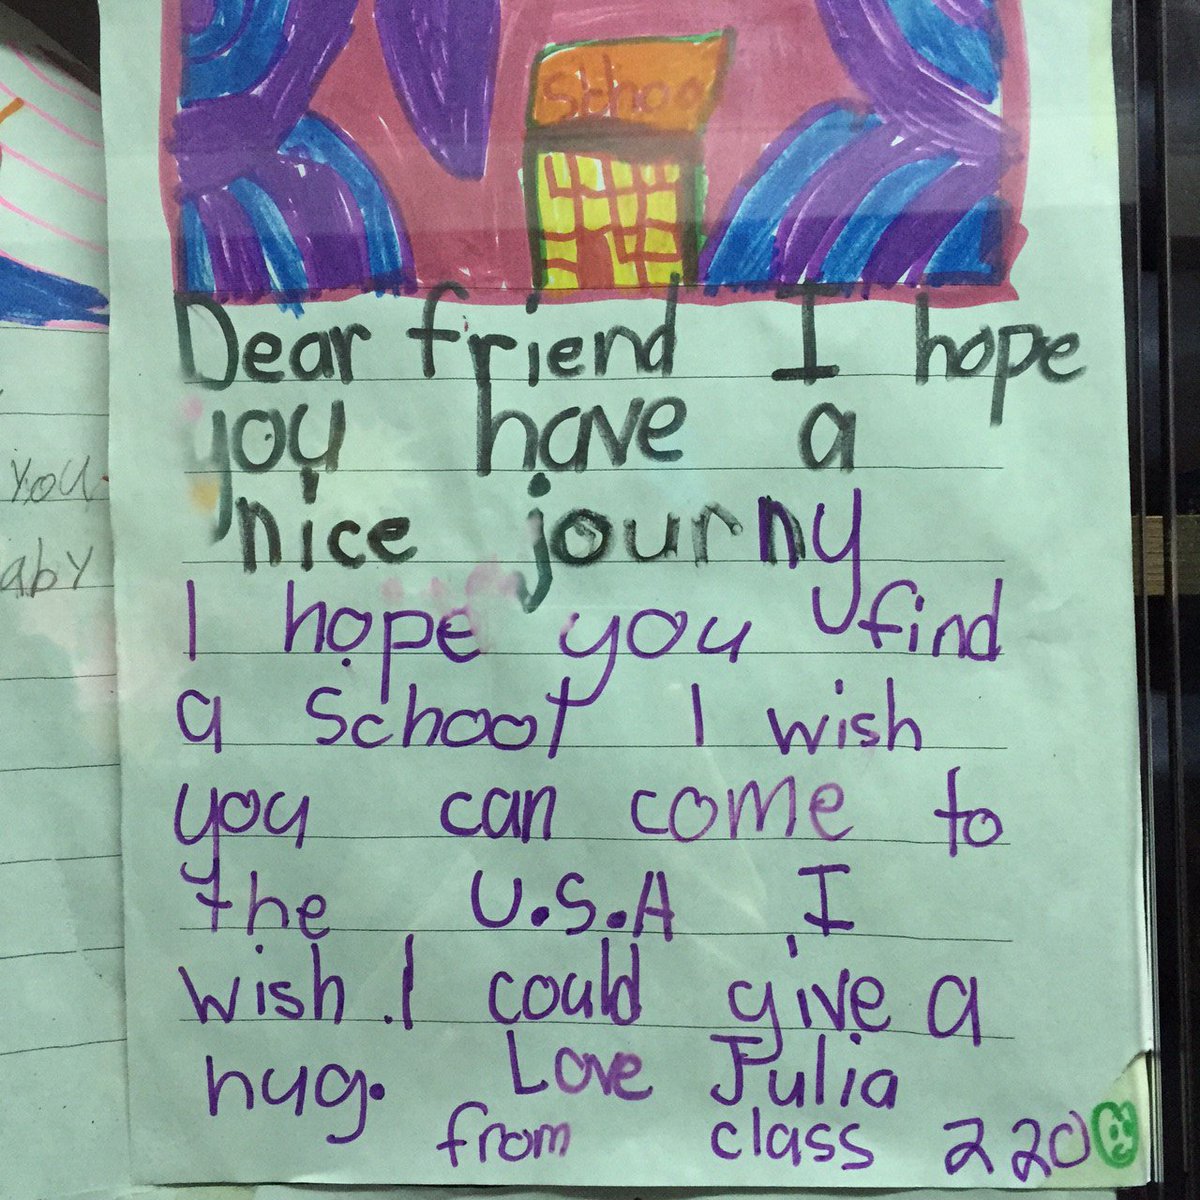 Schoo
Dear friend I hope
you have a
nice journy
I hope you find
a school I wish
you can come to
the U.S.A I
wish I could give a
hug. Love Julia
from class 220
you
aby